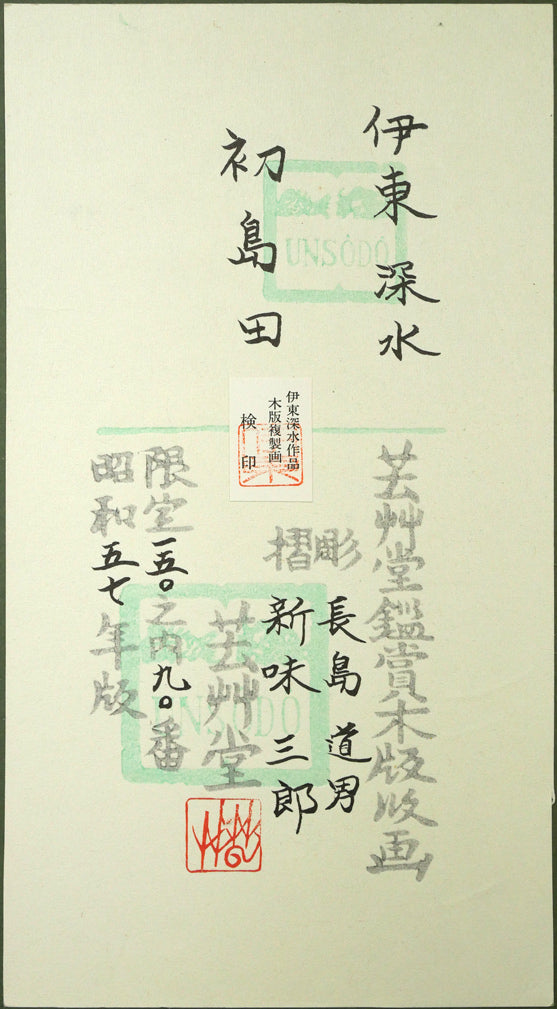 伊東深水
初島田
UNSÔDÔ
伊東深水作品
木版複製画
検印
芸艸堂鑑賞木版版画
彫 長島道男
摺 新味三郎
芸艸堂
限定一五〇之内九〇番
昭和五七年版
UNSÔDÔ